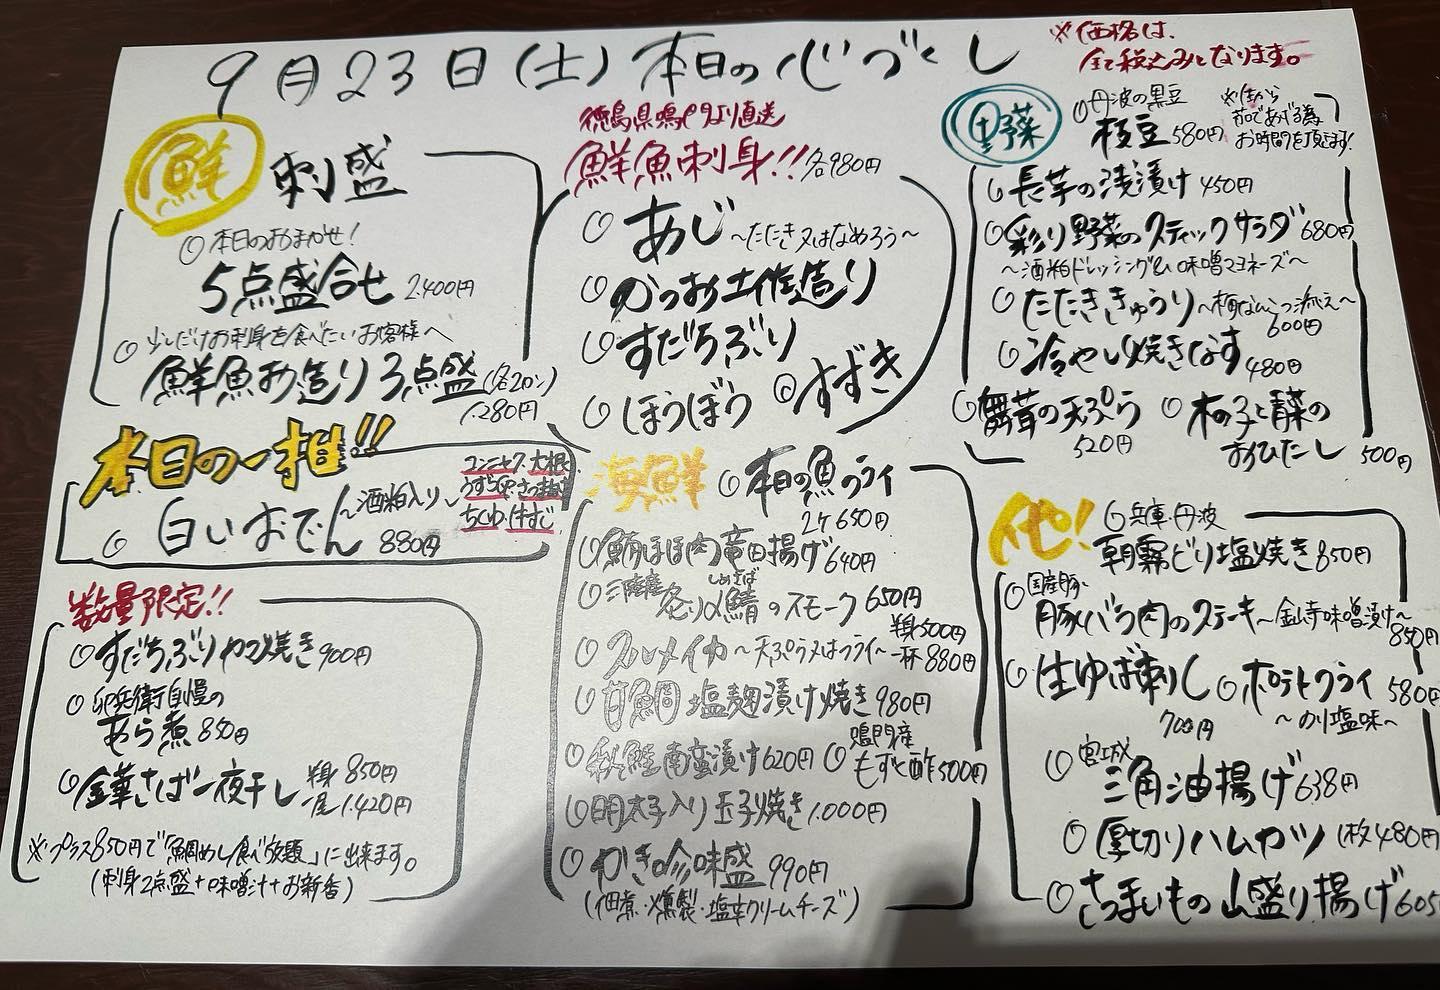 9月23日(土)本日の心づくし
※価格は、
全て税込みとなります。
鮮
刺盛
本日のおまかせ!
5点盛合せ 2.400円
少しだけお刺身を食べたいお客様へ
鮮魚お造り3点盛(各2カン)
1.280円
本日の一推!!
白いおでん ~酒粕入り~ 880円
コンニャク・大根
ちくわ・牛すじ
数量限定!!
すだちぶりカマ焼き 900円
卯兵衛自慢の
あら煮 850円
金華さば一夜干し 半身 850円
一尾 1.420円
※プラス850円で「鯛めし食べ放題」に出来ます。
(刺身2点盛+味噌汁+お新香)
徳島県鳴門より直送
鮮魚刺身!! 各980円
あじ ~たたき又はなめろう~
かつお土佐造り
すだちぶり
ほうぼう
すずき
海鮮
本日の魚フライ
2ケ 650円
鮪ほほ肉竜田揚げ 640円
三陸産 炙り〆鯖のスモーク 650円
しめさば
スルメイカ ~天ぷら又はフライ~ 半身500円
一杯 880円
甘鯛 塩麹漬け焼き 980円
秋鮭南蛮漬け 620円
鳴門産
もずく酢 500円
明太子入り玉子焼き 1.000円
かき吟味盛 990円
(佃煮・燻製・塩辛クリームチーズ)
野菜
丹波の黒豆
枝豆 580円
※生から
茹であげる為
お時間を頂きます!
長芋の浅漬け 450円
彩り野菜のスティックサラダ 680円
~酒粕ドレッシング&味噌マヨネーズ~
たたききゅうり ~梅なんこつ添え~
600円
冷やし焼きなす 480円
舞茸の天ぷら
520円
木の子と青菜の
おひたし 500円
他!
兵庫・丹波
朝霧どり塩焼き 850円
国産豚
豚バラ肉のステーキ ~金山寺味噌漬け~
850円
生ゆば刺し
700円
ポテトフライ 580円
~のり塩味~
宮城
三角油揚げ 638円
厚切りハムカツ 1枚 480円
さつまいもの山盛り揚げ 605